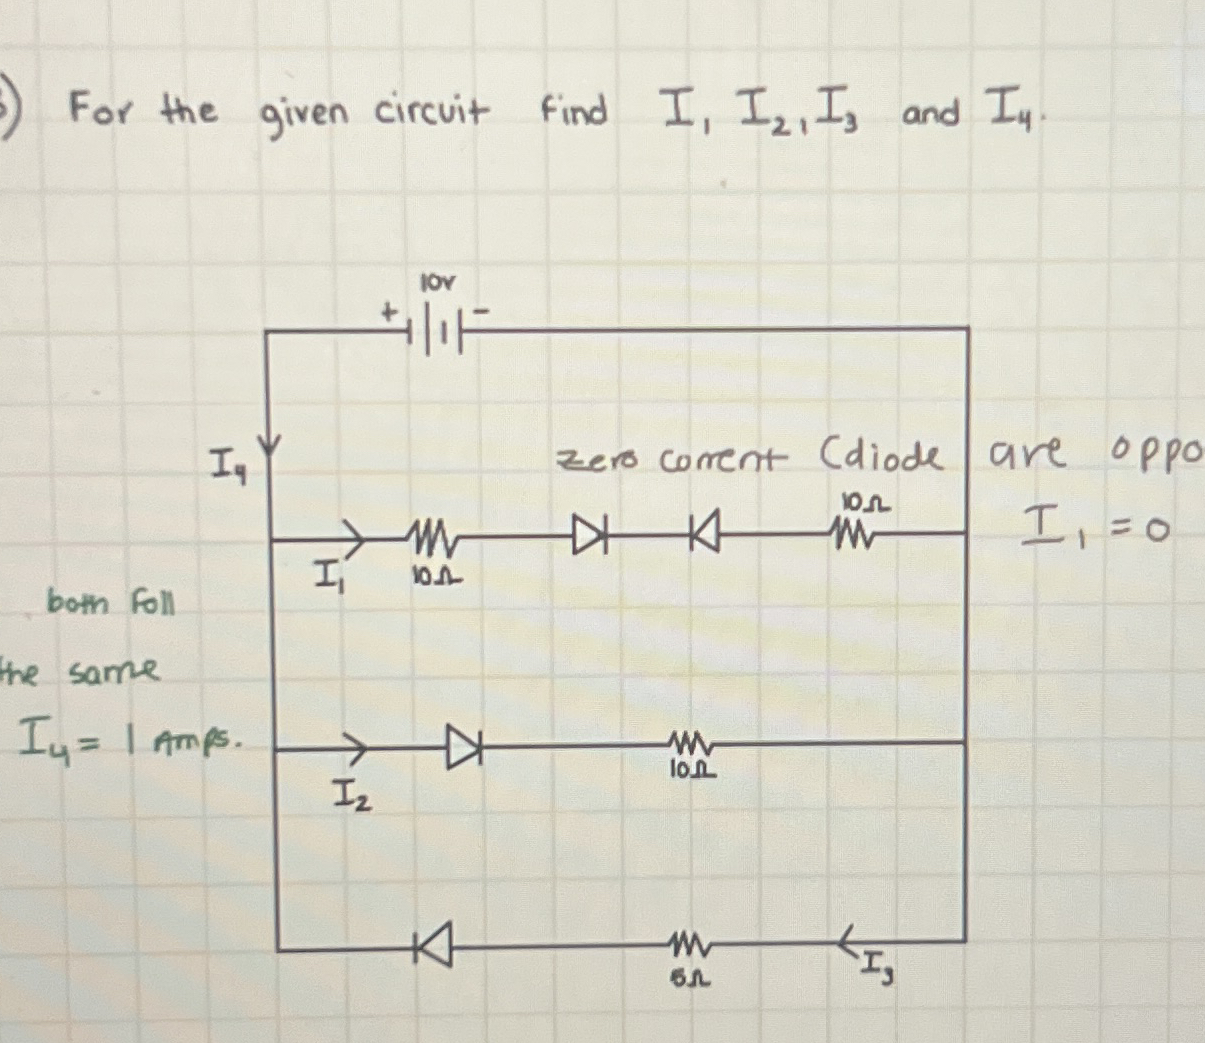 ) For the given circuit find I₁ I₂, I₃ and I₄.
10v
+ -
I₄
zero corrent (diode are oppo
10Ω
I₁ = 0
I₁
10Ω
both foll
the same
I₄ = 1 Amps.
10Ω
I₂
I₃
5Ω